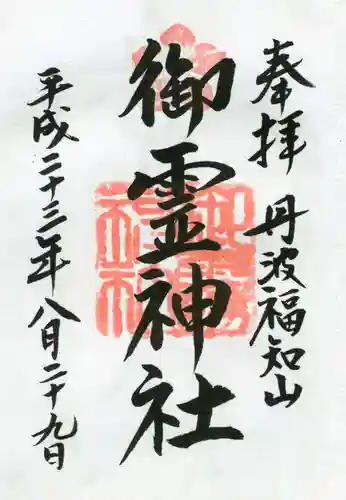 奉拝 丹波福知山
御霊神社
平成二十三年八月二十九日